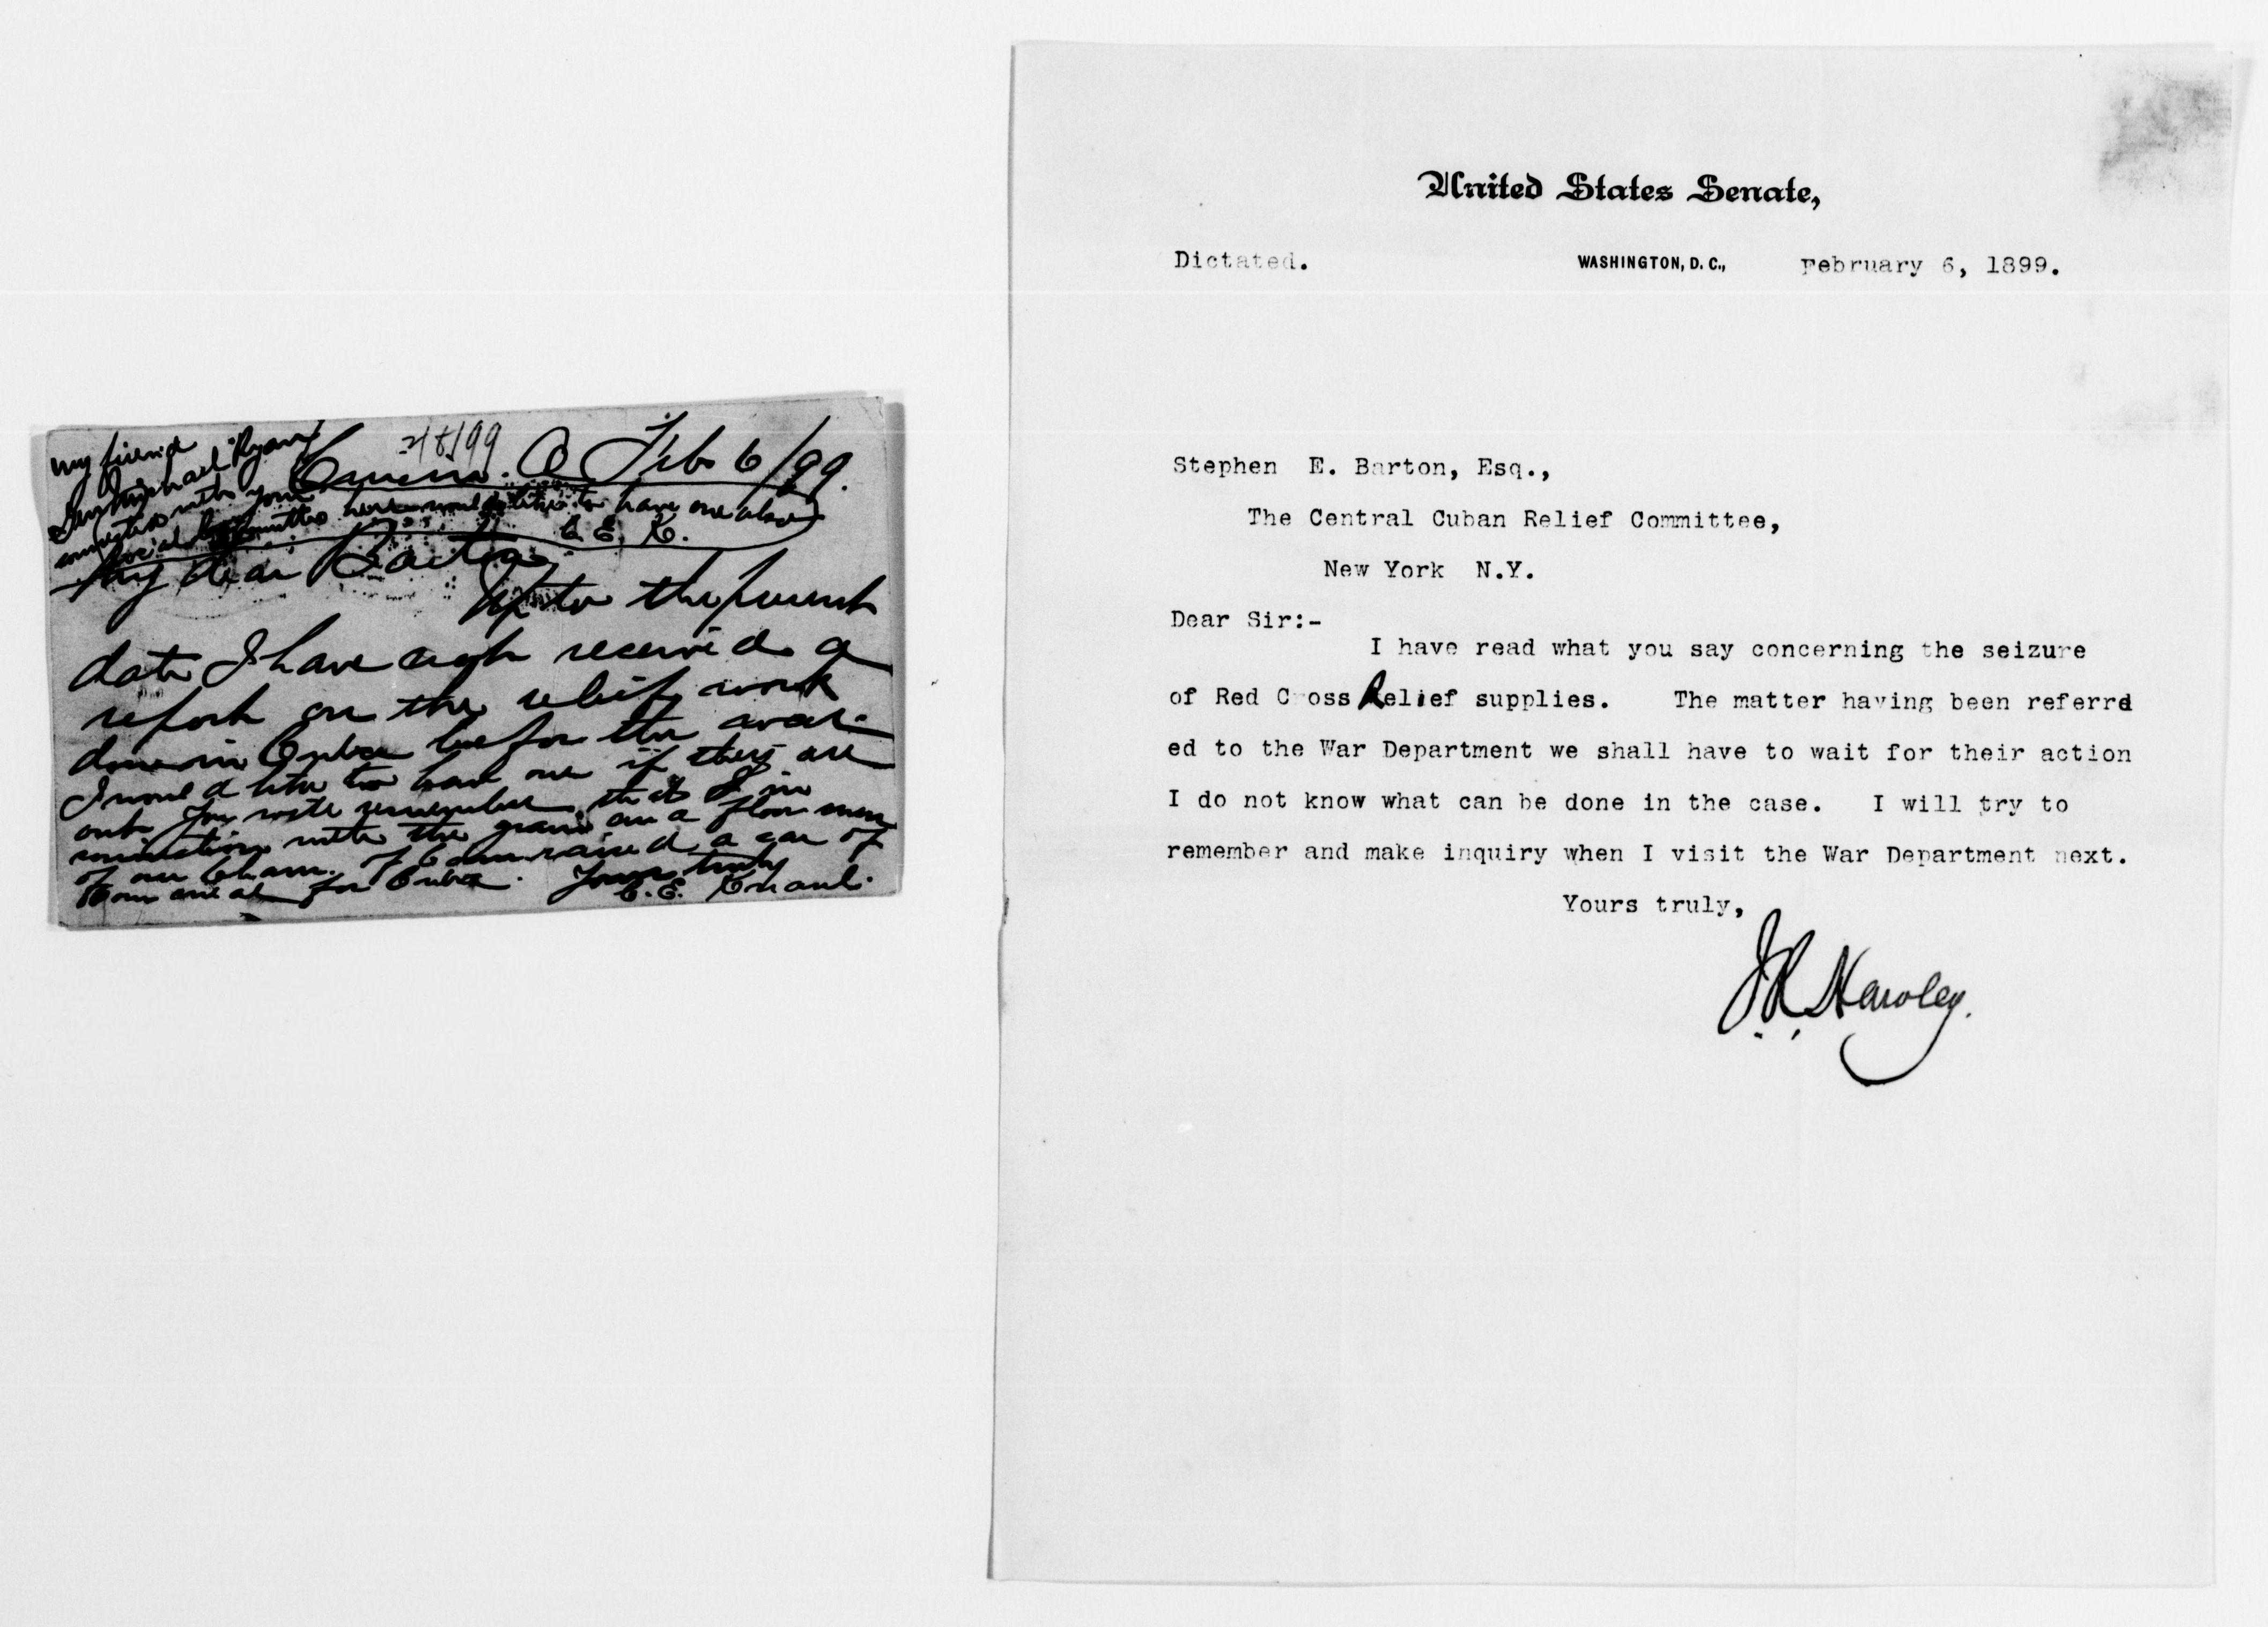 2/8/99
my friend
Michael Ryan
connected with your
local Committee here would like to have one also
C. E. K.
O Feb 6/99.
My dear Barton
Up to the present
date I have not received a
report on the relief work
done in Cuba before the war.
I would like to have one if they are
out. You will remember that I in
connection with the grain and flour men
of our Cham. of Com raised a car of
Corn meal for Cuba. Yours truly
C. E.
United States Senate,
Dictated. WASHINGTON, D. C., February 6, 1899.
Stephen E. Barton, Esq.,
The Central Cuban Relief Committee,
New York N.Y.
Dear Sir:-
I have read what you say concerning the seizure
of Red Cross Relief supplies. The matter having been referrd
ed to the War Department we shall have to wait for their action
I do not know what can be done in the case. I will try to
remember and make inquiry when I visit the War Department next.
Yours truly,
J. R. Hawley.